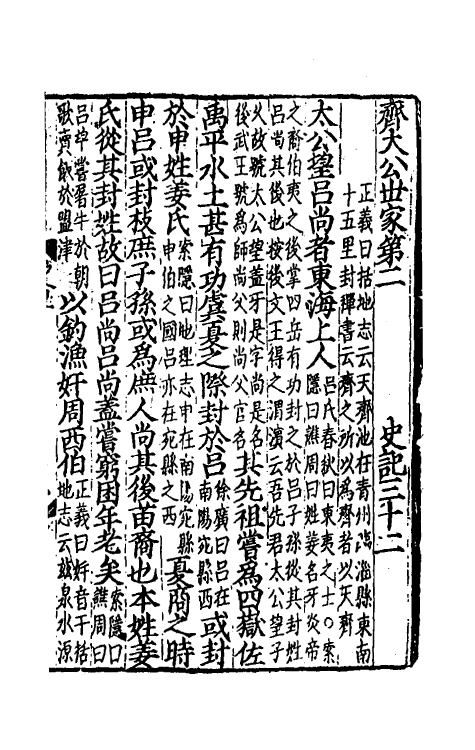 齊大公世家第二 史記三十二
正義曰括地志云天齊池在青州臨淄縣東南
十五里封禪書云齊之所以爲齊者以天齊
太公望呂尚者東海上人 呂氏春秋曰東夷之士○索
隱曰譙周曰姓姜名牙炎帝
之裔伯夷之後掌四岳有功封之於呂子孫從其封姓
呂尚其後也按後文王得之渭濱云吾先君太公望子
久故號太公望蓋牙是字尚是名
後武王號爲師尚父則尚父官名 其先祖嘗爲四嶽佐
禹平水土甚有功虞夏之際封於呂 徐廣曰呂在
南陽宛縣西 或封
於申姓姜氏 索隱曰地理志申在南陽宛縣
申伯之國呂亦在宛縣之西 夏商之時
申呂或封枝庶子孫或爲庶人尚其後苗裔也本姓姜
氏從其封姓故曰呂尚呂尚蓋嘗窮困年老矣 索隱曰
譙周曰
呂望嘗屠牛於朝
歌賣飲於盟津 以釣漁奸周西伯 正義曰奸音干括
地志云茲泉水源